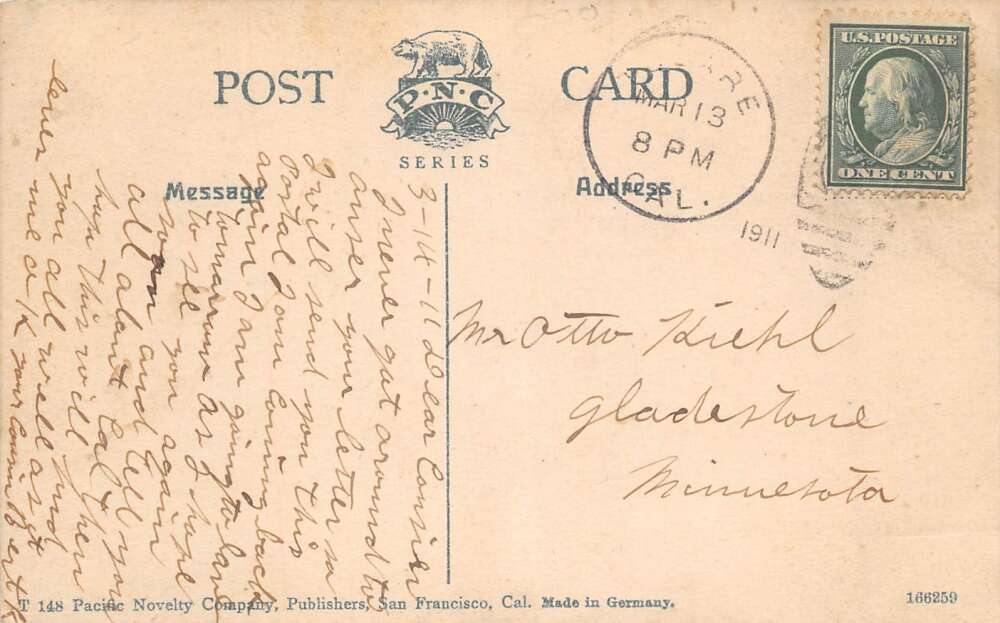 POST CARD
P·N·C
SERIES
Message
Address
U.S. POSTAGE
ONE CENT
MAR 13
8 PM
CAL.
1911
3-14-11 Dear Consier
I never gut around to
anser your letter so
I will send you this
Postal I am coming back
again I am going to
tomarrow as I hope
to see you again
soon and tell you
all about Cal then
hope this will find
you all well as it
me a/k your
Mr Otto Kiehl
Gladestone
Minnesota
T 148 Pacific Novelty Company, Publishers, San Francisco, Cal. Made in Germany.
166259